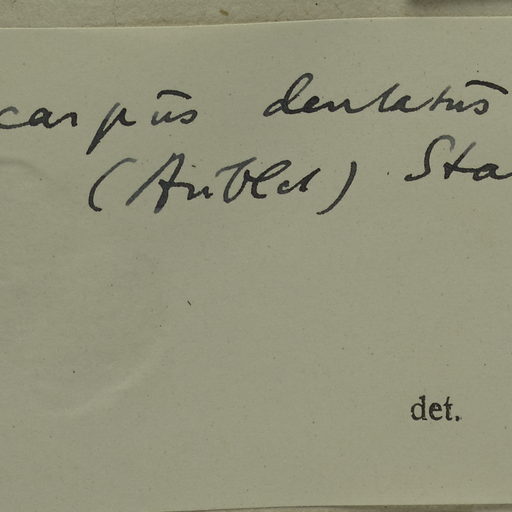 carpus dentatus
(Aublet) Sta
det.